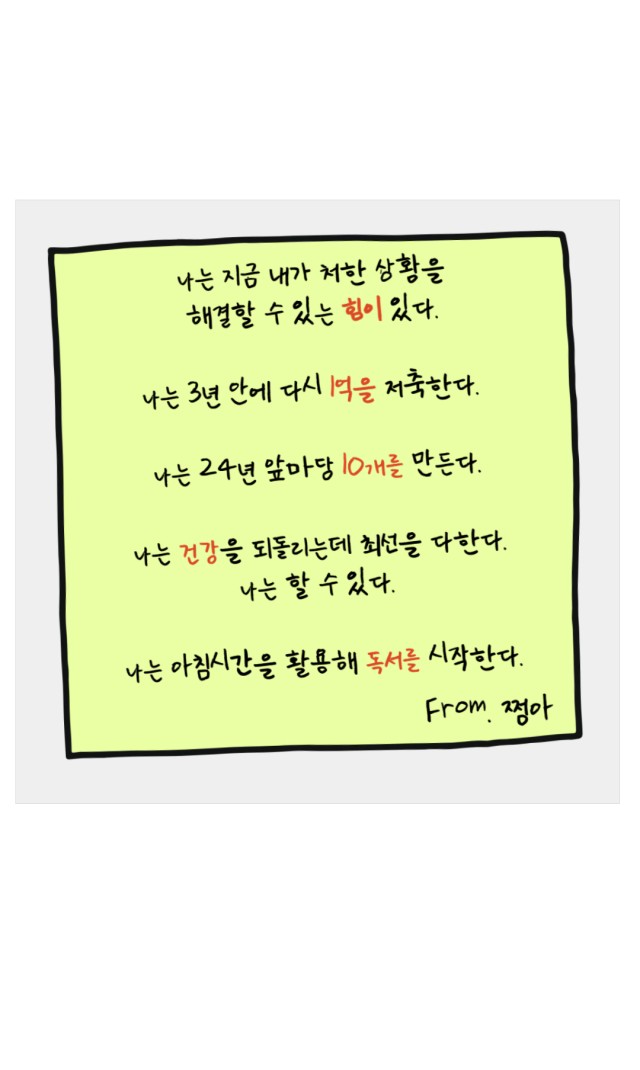 나는 지금 내가 처한 상황을
해결할 수 있는 힘이 있다.
나는 3년 안에 다시 1억을 저축한다.
나는 24년 앞마당 10개를 만든다.
나는 건강을 되돌리는데 최선을 다한다.
나는 할 수 있다.
나는 아침시간을 활용해 독서를 시작한다.
From. 쩡아